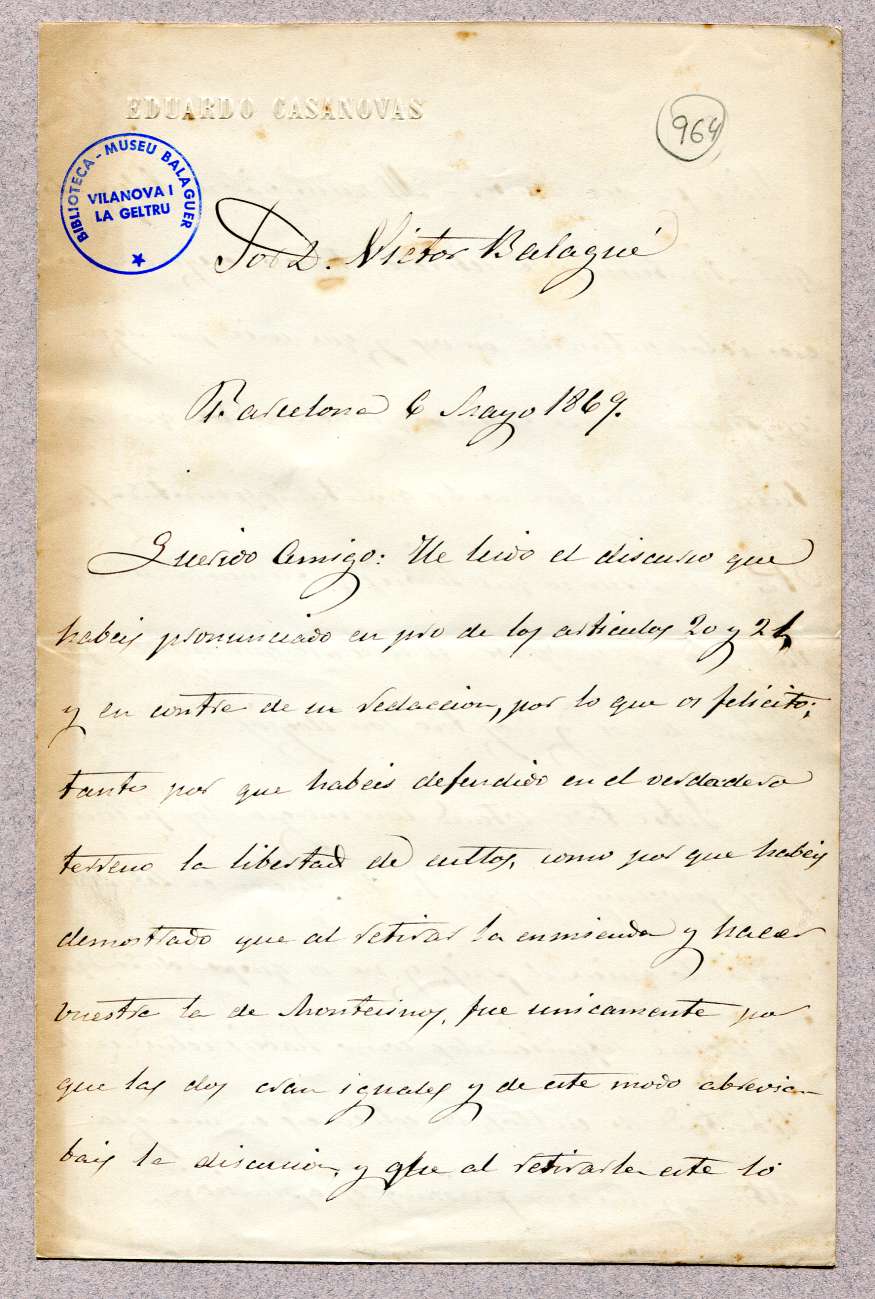 EDUARDO CASANOVAS
964
BIBLIOTECA - MUSEU BALAGUER
VILANOVA I
LA GELTRU
Sor D. Victor Balagué
Barcelona 6 Mayo 1869.
Querido Amigo: He leido el discurso que
habeis pronunciado en pro de los articulos 20 y 21,
y en contra de su redaccion, por lo que os felicito;
tanto por que habeis defendido en el verdadero
terreno la libertad de cultos, como por que habeis
demostrado que al retirar la enmienda y hacer
vuestra la de Montesinos, fue unicamente por
que las dos eran iguales y de este modo abrevia-
bais la discusion, y que al retirarla este lo